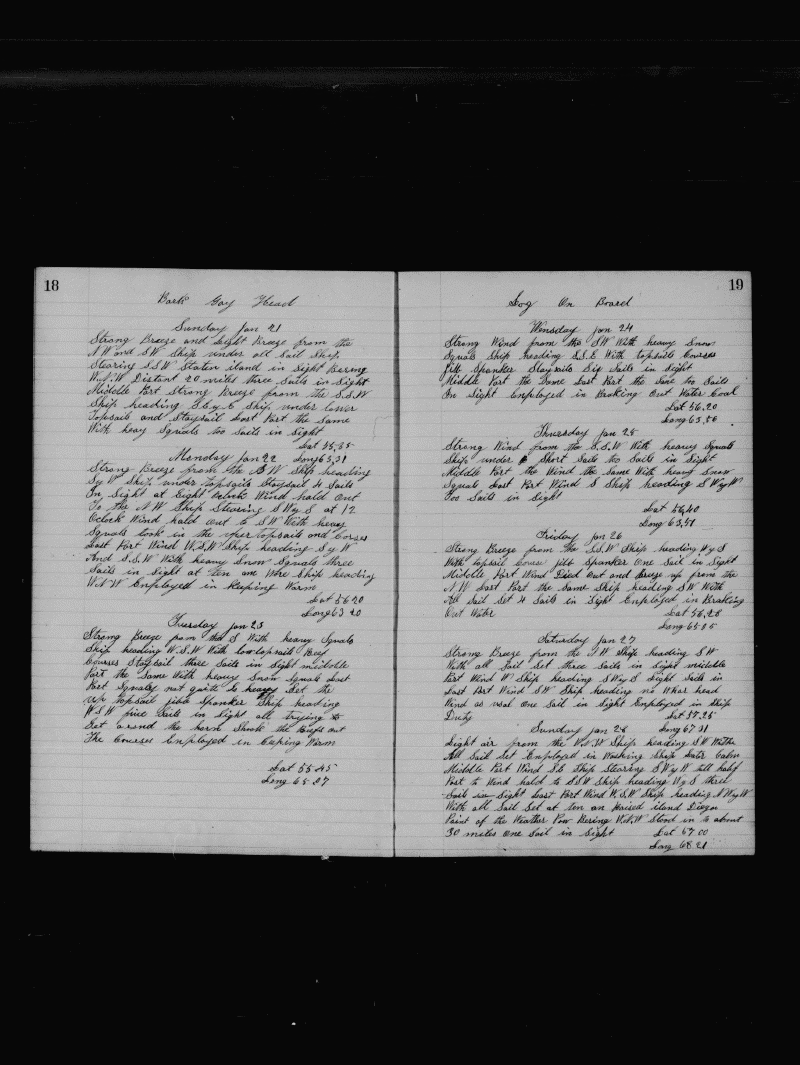 18
Bark Gay Head
Sunday Jan 21
Strong Breeze and Light Breeze from the
N W and S W Ship under all Sail Ship
Stearing S S W Staten iland in Sight Bering
W.N.W Distant 20 miles three Sails in Sight
Middle Part Strong Breeze from the S.S.W
Ship heading S.E by E Ship under lower
Topsails and Staysail Last Part the Same
With heavy Squals too Sails in Sight
Lat 55,35
Monday Jan 22 Long 63,31
Strong Breeze from the S W Ship heading
S y W Ship under topsails Staysail 4 Sails
In Sight at Eight oclock Wind hald Out
To the N W Ship Stearing S W y S at 12
Oclock Wind hald out to S W With heavy
Squals took in the uper topsails and Corses
Last Part Wind W.S.W Ship heading S y W
And S.S.W With heavy Snow Squals three
Sails in Sight at ten am Wore Ship heading
W.N.W Employed in Keeping Warm
Lat 56 20
Long 63 20
Tuesday Jan 23
Strong Breeze from the S With heavy Squals
Ship heading W.S.W With low topsails Reef
Courses Staysail three Sails in Sight middle
Part the Same With heavy Snow Squals Last
Part Squaley not quite So heavy Set the
up topsail jibb Spanker Ship heading
W S W five Sails in Sight all trying to
Get around the horn Shook the Reefs out
The Courses Employed in Keeping Warm
Lat 55-45
Long 65-27
19
Log On Board
Wensday Jan 24
Strong Wind from the SW With heavy Snow
Squals Ship heading S.S.E With topsails Courses
jibb Spanker Staysails Six Sails in Sight
Middle Part the Same Last Part the Same no Sails
In Sight Employed in Braking Out Water Coal
Lat 56,20
Long 63,56
Thursday Jan 25
Strong Wind from the S.S.W With heavy Squals
Ship under Short Sails too Sails in Sight
Middle Part the Wind the Same With heavy Snow
Squals Last Part Wind S Ship heading S W y W
Too Sails in Sight
Lat 56,40
Long 63,51
Friday Jan 26
Strong Breeze from the S.S.W Ship heading W y S
With topsail Courses jibb Spanker One Sail in Sight
Middle Part Wind Died Out and Breeze up from the
N W Last Part the Same Ship heading S W With
All Sail Set 4 Sails in Sight Employed in Braking
Out Water Lat 56,28
Long 65 05
Saturday Jan 27
Strong Breeze from the N W Ship heading S W
With all Sail Set three Sails in Sight middle
Part Wind W Ship heading S W y S Eight Sails in
Last Part Wind SW Ship heading no Whar head
Wind as usal One Sail in Sight Employed in Ship
Duty Lat 57.25
Sunday Jan 28 Long 67 31
Light air from the W.N.W Ship heading S.W With
All Sail Set Employed in Washing Ship Later Calm
Middle Part Wind S.E Ship Stearing S W y W till half
Part to Wind hald to SSW Ship heading W y S three
Sails in Sight Last Part Wind W.S.W Ship heading N W y W
With all Sail Set at ten am Raised iland Diego
Point of the Weather Bow Bering W.N.W Stood in to about
30 miles One Sail in Sight Lat 57 00
Long 68 21